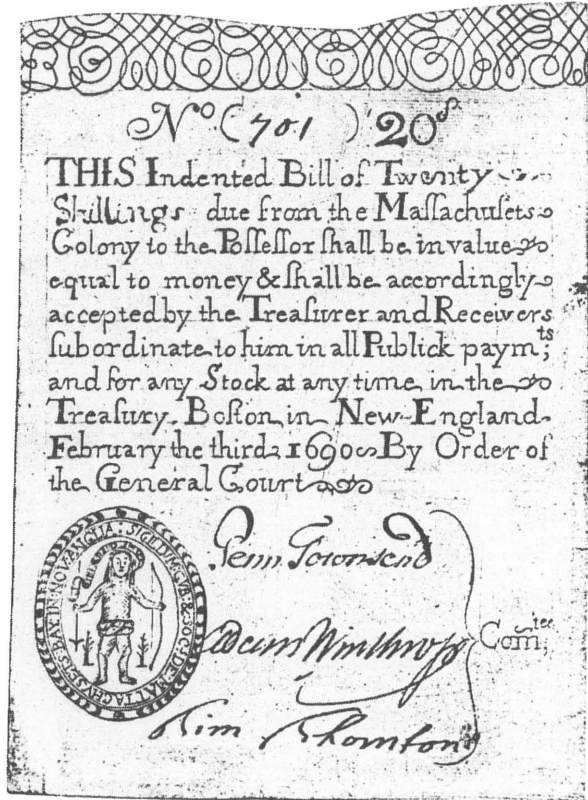 Nº (701) 20ˢ
THIS Indented Bill of Twenty
Shillings due from the Maſſachuſets
Colony to the Poſſeſſor ſhall be in value
equal to money & ſhall be accordingly
accepted by the Treaſurer and Receivers
ſubordinate to him in all Publick paymᵗˢ;
and for any Stock at any time in the
Treaſury. Boſton in New-England
February the third 1690 By Order of
the General Court
SIGILLVM: GVB: & SOC: DE: MATTACHVSETS: BAY: IN: NOV: ANGLIA:
Penn Townsend
Adam Winthrop
Tim Thornton
Com̃ᵗᵉᵉ